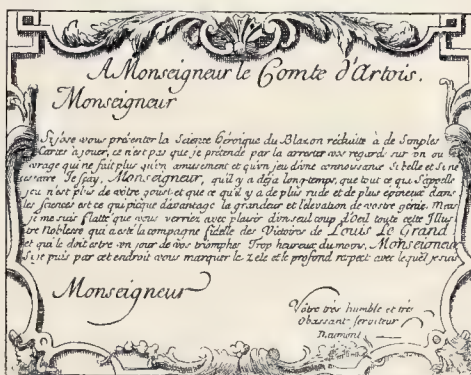 A Monseigneur le Comte d'Artois.
Monseigneur
Si j'ose vous présenter la Science Héroique du Blazon réduite à de Simples
Cartes a jouer, ce n'est pas que je prétende par là arreter vos regards sur un ou
vrage qui ne fait plus qu'un amusement et qu'un jeu d'une connoissance si belle et si né
cessaire Je sçay, Monseigneur, qu'il y a deja long-temps, que tout ce qui s'appelle
jeu n'est plus de vôtre goust et que ce qu'il y a de plus rude et de plus epineux dans
les sciences est ce qui pique davantage la grandeur et l'élevation de vostre genie. Mais
je me suis flatté que vous verriez avec plaisir d'un seul coup d'Oeil toute cette Illus
tre Noblesse qui a esté la compagne fidelle des Victoires de Louis Le Grand
et qui le doit estre un jour de vos triomphes Trop heureux du moins, Monseigneur
Si je puis par cet endroit vous marquer le Zele et le profond respect avec lequel je suis
Monseigneur
Vôtre très humble et très
Obeissant Serviteur
Daumont